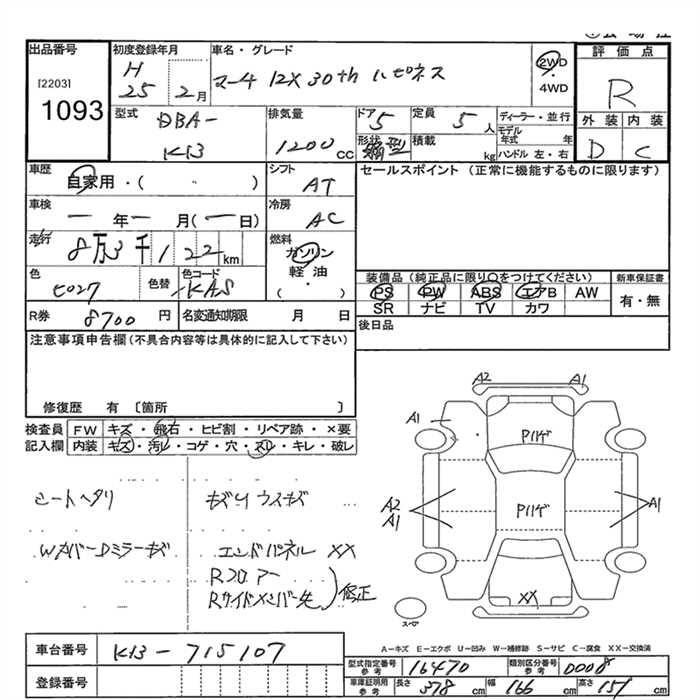 出品番号
[2203]
1093
初度登録年月
H
25 2月
車名・グレード
マーチ 12X 30th ハピネス
2WD
・
4WD
評価点
R
外装 内装
D C
型式
DBA-
K13
排気量
1200CC
ドア 5
形状 箱型
定員 5人
積載 kg
ディーラー・並行
モデル年式 年
ハンドル 左・右
車歴
自家用・( )
シフト
AT
セールスポイント (正常に機能するものに限ります)
車検
ー年ー月(ー日)
冷房
AC
走行
8万3千122km
燃料
ガソリン
軽油
( )
色
色替
色コード
KAS
装備品 (純正品に限り○をつけてください)
PS PW ABS エアB AW
SR ナビ TV カワ
新車保証書
有・無
R券 8700円
名変通知期限 月 日
後日品
注意事項申告欄 (不具合内容等は具体的に記入して下さい)
修復歴 有 〔箇所 〕
検査員記入欄
FW キズ・飛石・ヒビ割・リペア跡・×要
内装 キズ・汚レ・コゲ・穴・スレ・キレ・破レ
シートヘタリ
キズリ ウスキズ
WカバーDミラーキズ
エンドパネル XX
Rフロアー
Rサイドメンバー先
修正
A2 A1
A1
P1ハゲ
A2
A1
P1ハゲ
A1
XX
スペア
A-キズ E-エクボ U-凹み W-補修跡 S-サビ C-腐食 XX-交換済
車台番号 K13-715107
登録番号
型式指定番号 参考 16470
類別区分番号 参考 0008
車庫証明用 参考 長さ 378cm 幅 166cm 高さ 151cm